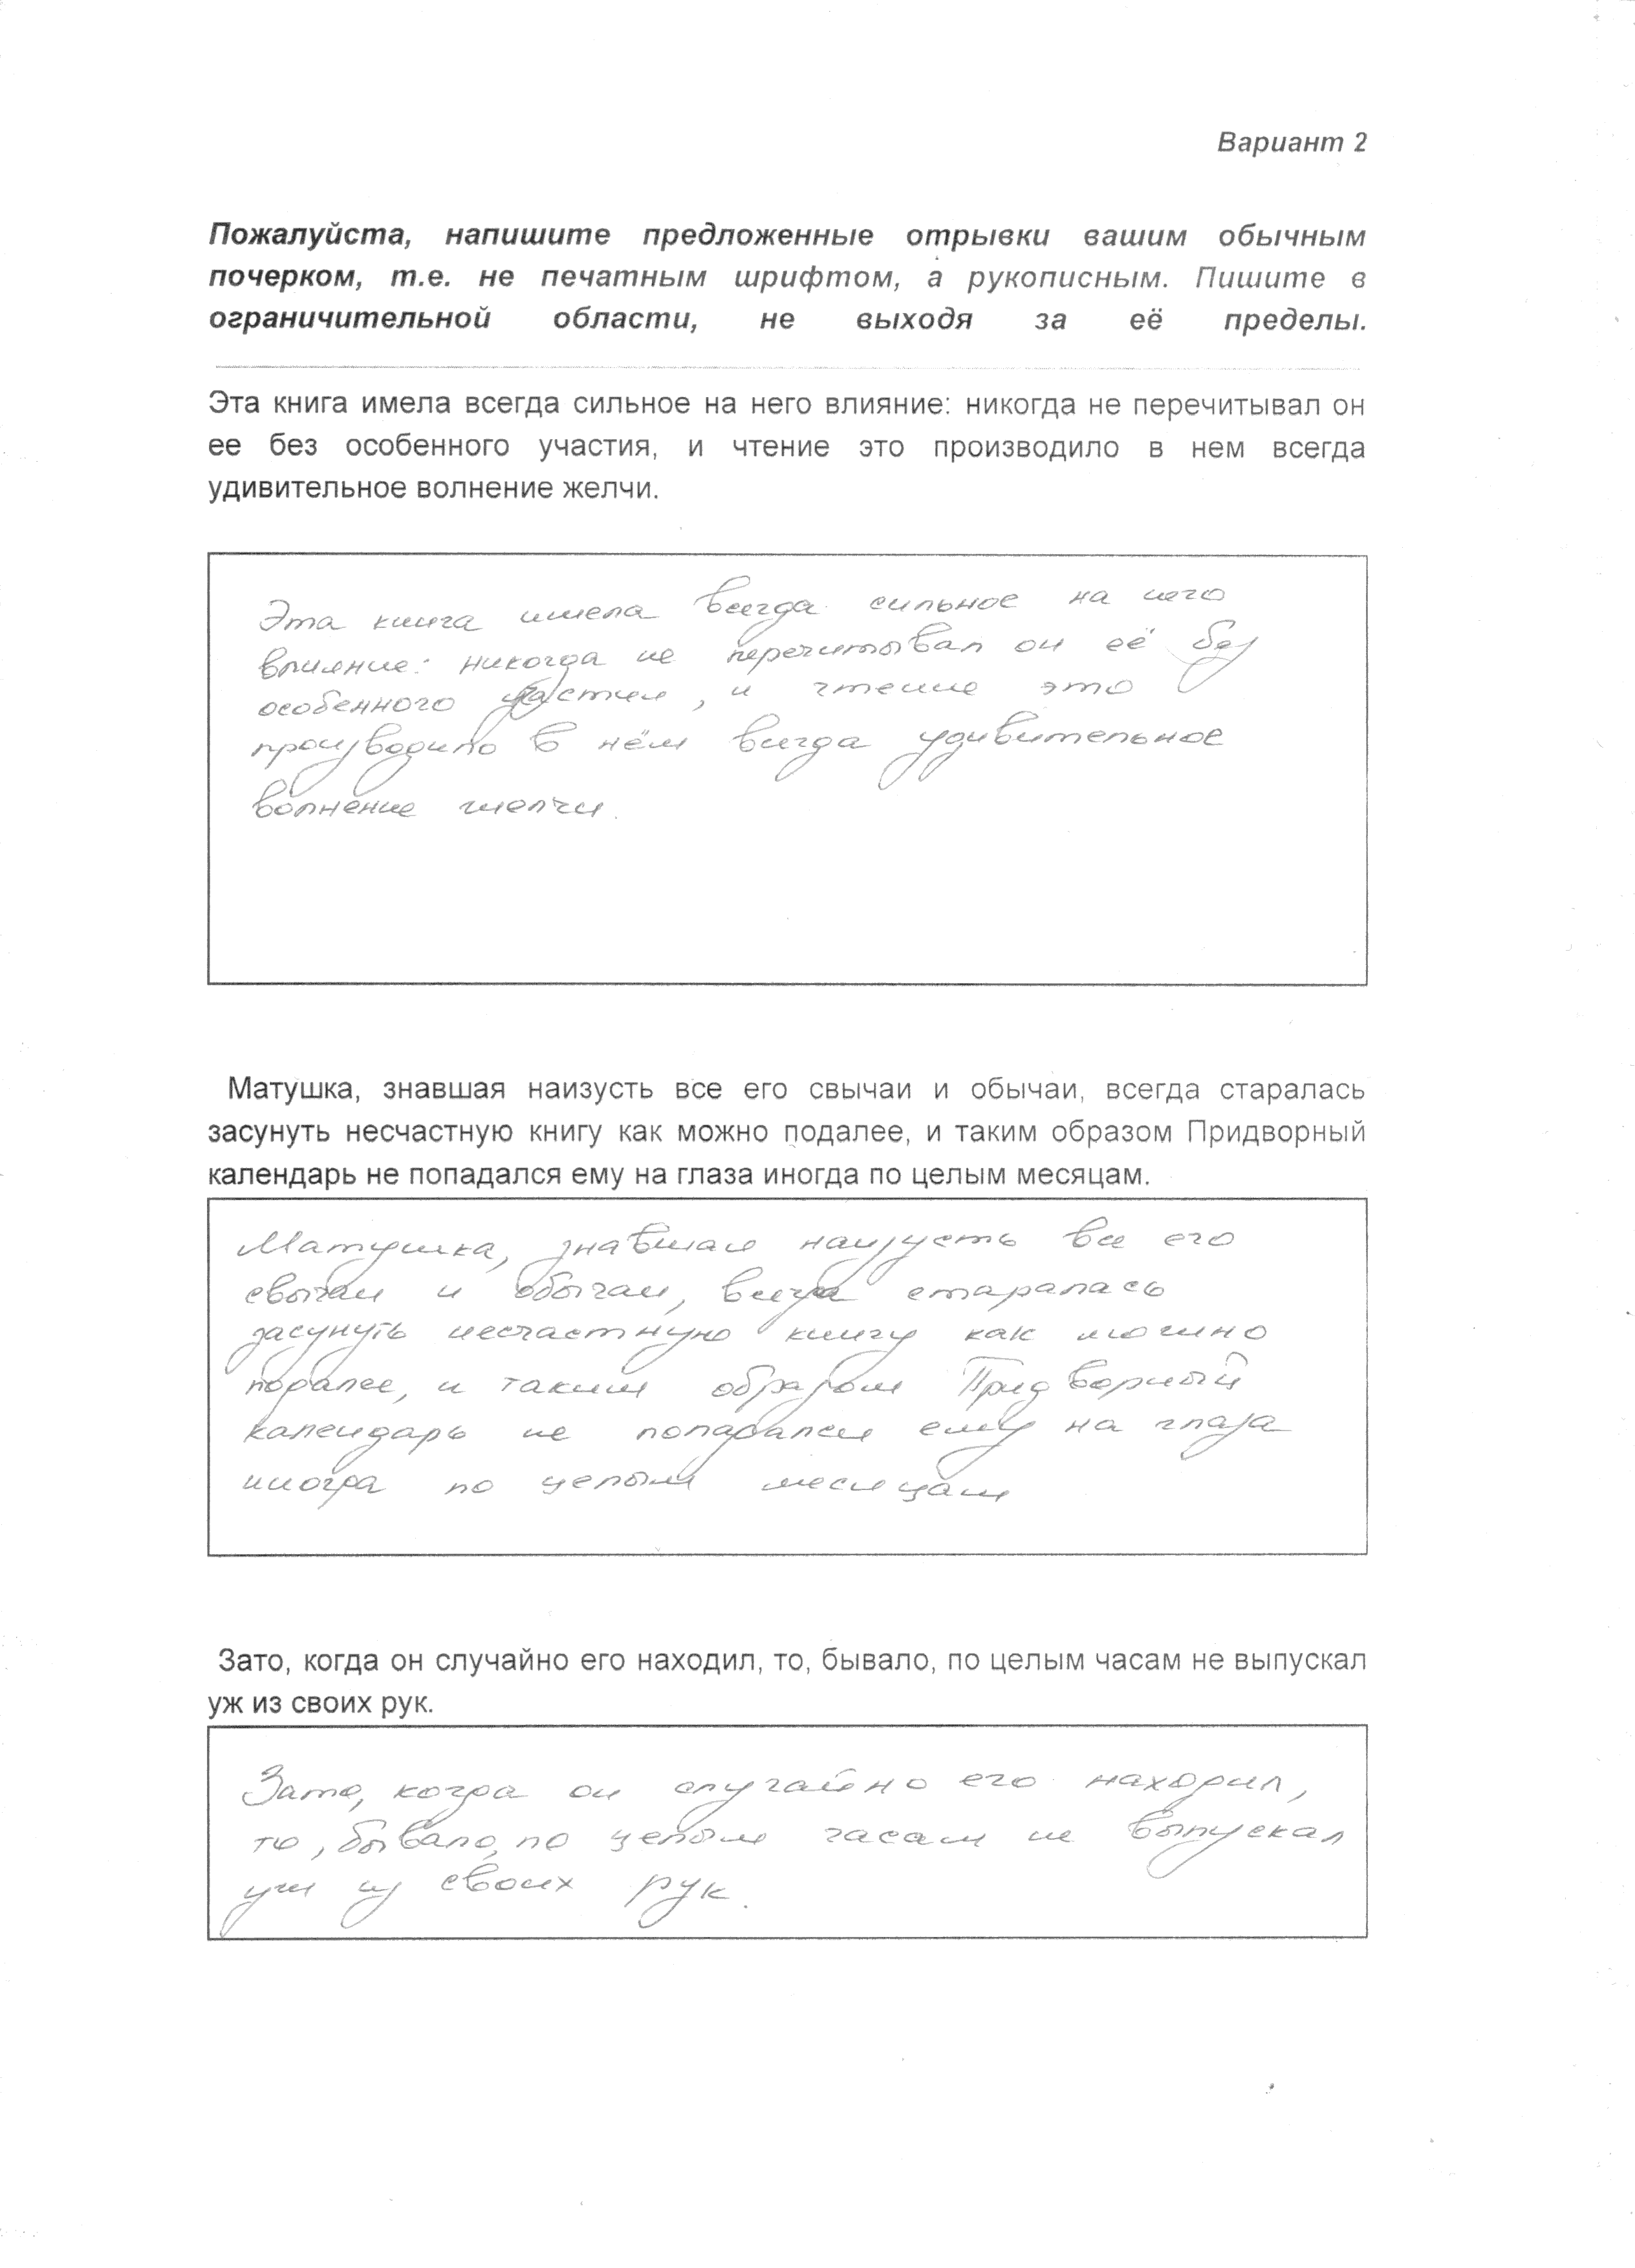 Вариант 2
Пожалуйста, напишите предложенные отрывки вашим обычным
почерком, т.е. не печатным шрифтом, а рукописным. Пишите в
ограничительной области, не выходя за её пределы.
Эта книга имела всегда сильное на него влияние: никогда не перечитывал он
ее без особенного участия, и чтение это производило в нем всегда
удивительное волнение желчи.
Эта книга имела всегда сильное на него
влияние: никогда не перечитывал он её без
особенного участия, и чтение это
производило в нём всегда удивительное
волнение желчи.
Матушка, знавшая наизусть все его свычаи и обычаи, всегда старалась
засунуть несчастную книгу как можно подалее, и таким образом Придворный
календарь не попадался ему на глаза иногда по целым месяцам.
Матушка, знавшая наизусть все его
свычаи и обычаи, всегда старалась
засунуть несчастную книгу как можно
подалее, и таким образом Придворный
календарь не попадался ему на глаза
иногда по целым месяцам
Зато, когда он случайно его находил, то, бывало, по целым часам не выпускал
уж из своих рук.
Зато, когда он случайно его находил,
то, бывало, по целым часам не выпускал
уж из своих рук.